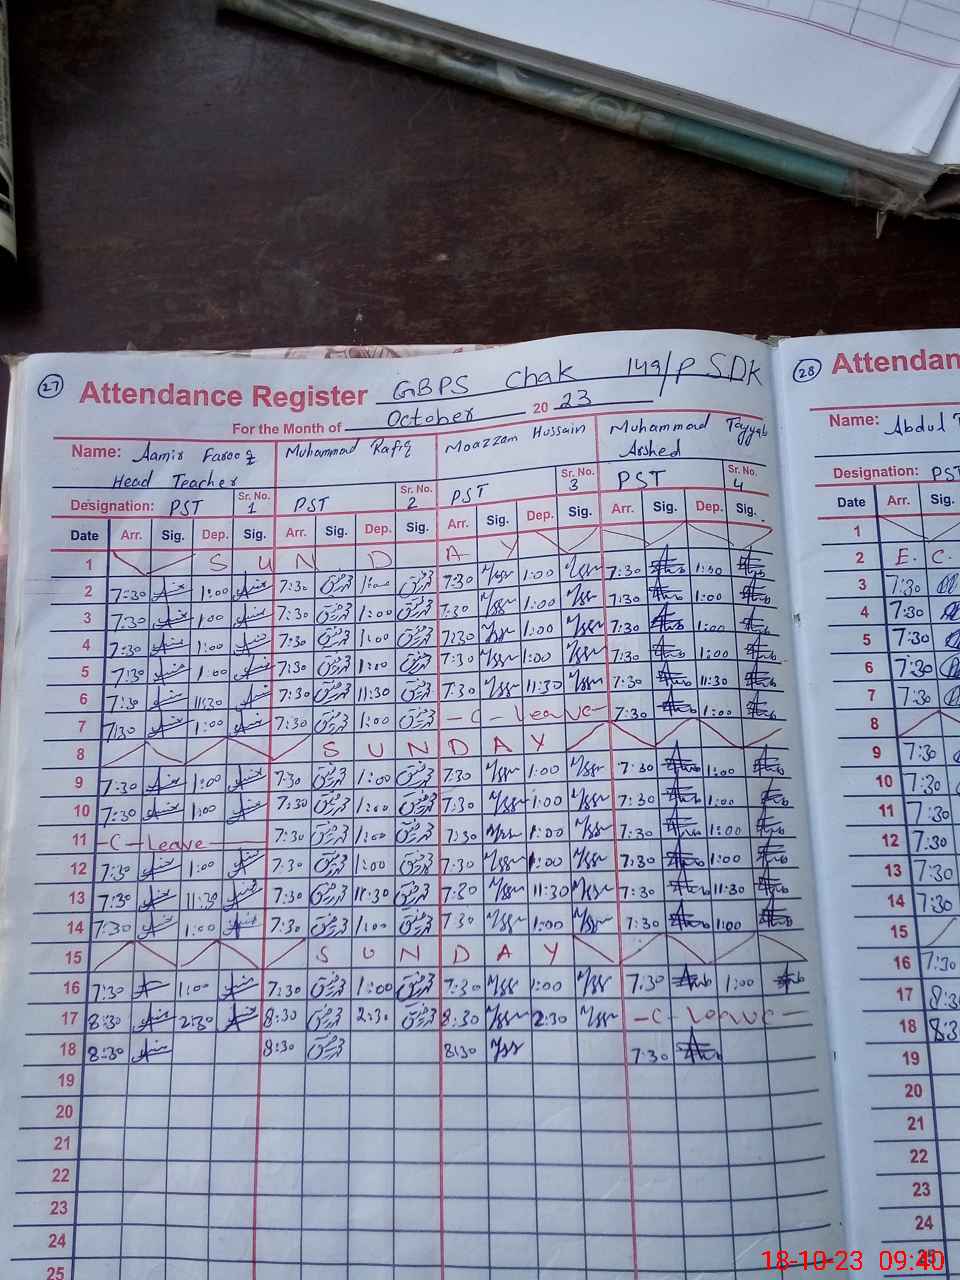 27 Attendance Register GBPS Chak 149/P SDK
For the Month of October 20 23
Name: Aamir Farooq Muhammad Rafiq Moazzam Hussain Muhammad Tayyab
Head Teacher Arshed
Designation: PST Sr. No. 1 PST Sr. No. 2 PST Sr. No. 3 PST Sr. No. 4
Date Arr. Sig. Dep. Sig. Arr. Sig. Dep. Sig. Arr. Sig. Dep. Sig. Arr. Sig. Dep. Sig.
1 S U N D A Y
2 7:30 1:00 7:30 1:00 7:30 1:00 7:30 1:30
3 7:30 1:00 7:30 1:00 7:30 1:00 7:30 1:00
4 7:30 1:00 7:30 1:00 7:30 1:00 7:30 1:00
5 7:30 1:00 7:30 1:00 7:30 1:00 7:30 1:00
6 7:30 11:30 7:30 11:30 7:30 11:30 7:30 11:30
7 7:30 1:00 7:30 1:00 - C - Leave - 7:30 1:00
8 S U N D A Y
9 7:30 1:00 7:30 1:00 7:30 1:00 7:30 1:00
10 7:30 1:00 7:30 1:00 7:30 1:00 7:30 1:00
11 - C - Leave - 7:30 1:00 7:30 1:00 7:30 1:00
12 7:30 1:00 7:30 1:00 7:30 1:00 7:30 1:00
13 7:30 11:30 7:30 11:30 7:30 11:30 7:30 11:30
14 7:30 1:00 7:30 1:00 7:30 1:00 7:30 1:00
15 S U N D A Y
16 7:30 1:00 7:30 1:00 7:30 1:00 7:30 1:00
17 8:30 2:30 8:30 2:30 8:30 2:30 - C - Leave -
18 8:30 8:30 8:30 7:30
19
20
21
22
23
24
25
28 Attendan
Name: Abdul
Designation: PS
Date Arr. Sig.
1
2 E. C.
3 7:30
4 7:30
5 7:30
6 7:30
7 7:30
8
9 7:30
10 7:30
11 7:30
12 7:30
13 7:30
14 7:30
15
16 7:30
17 8:30
18 8:3
19
20
21
22
23
24
25
18-10-23 09:40